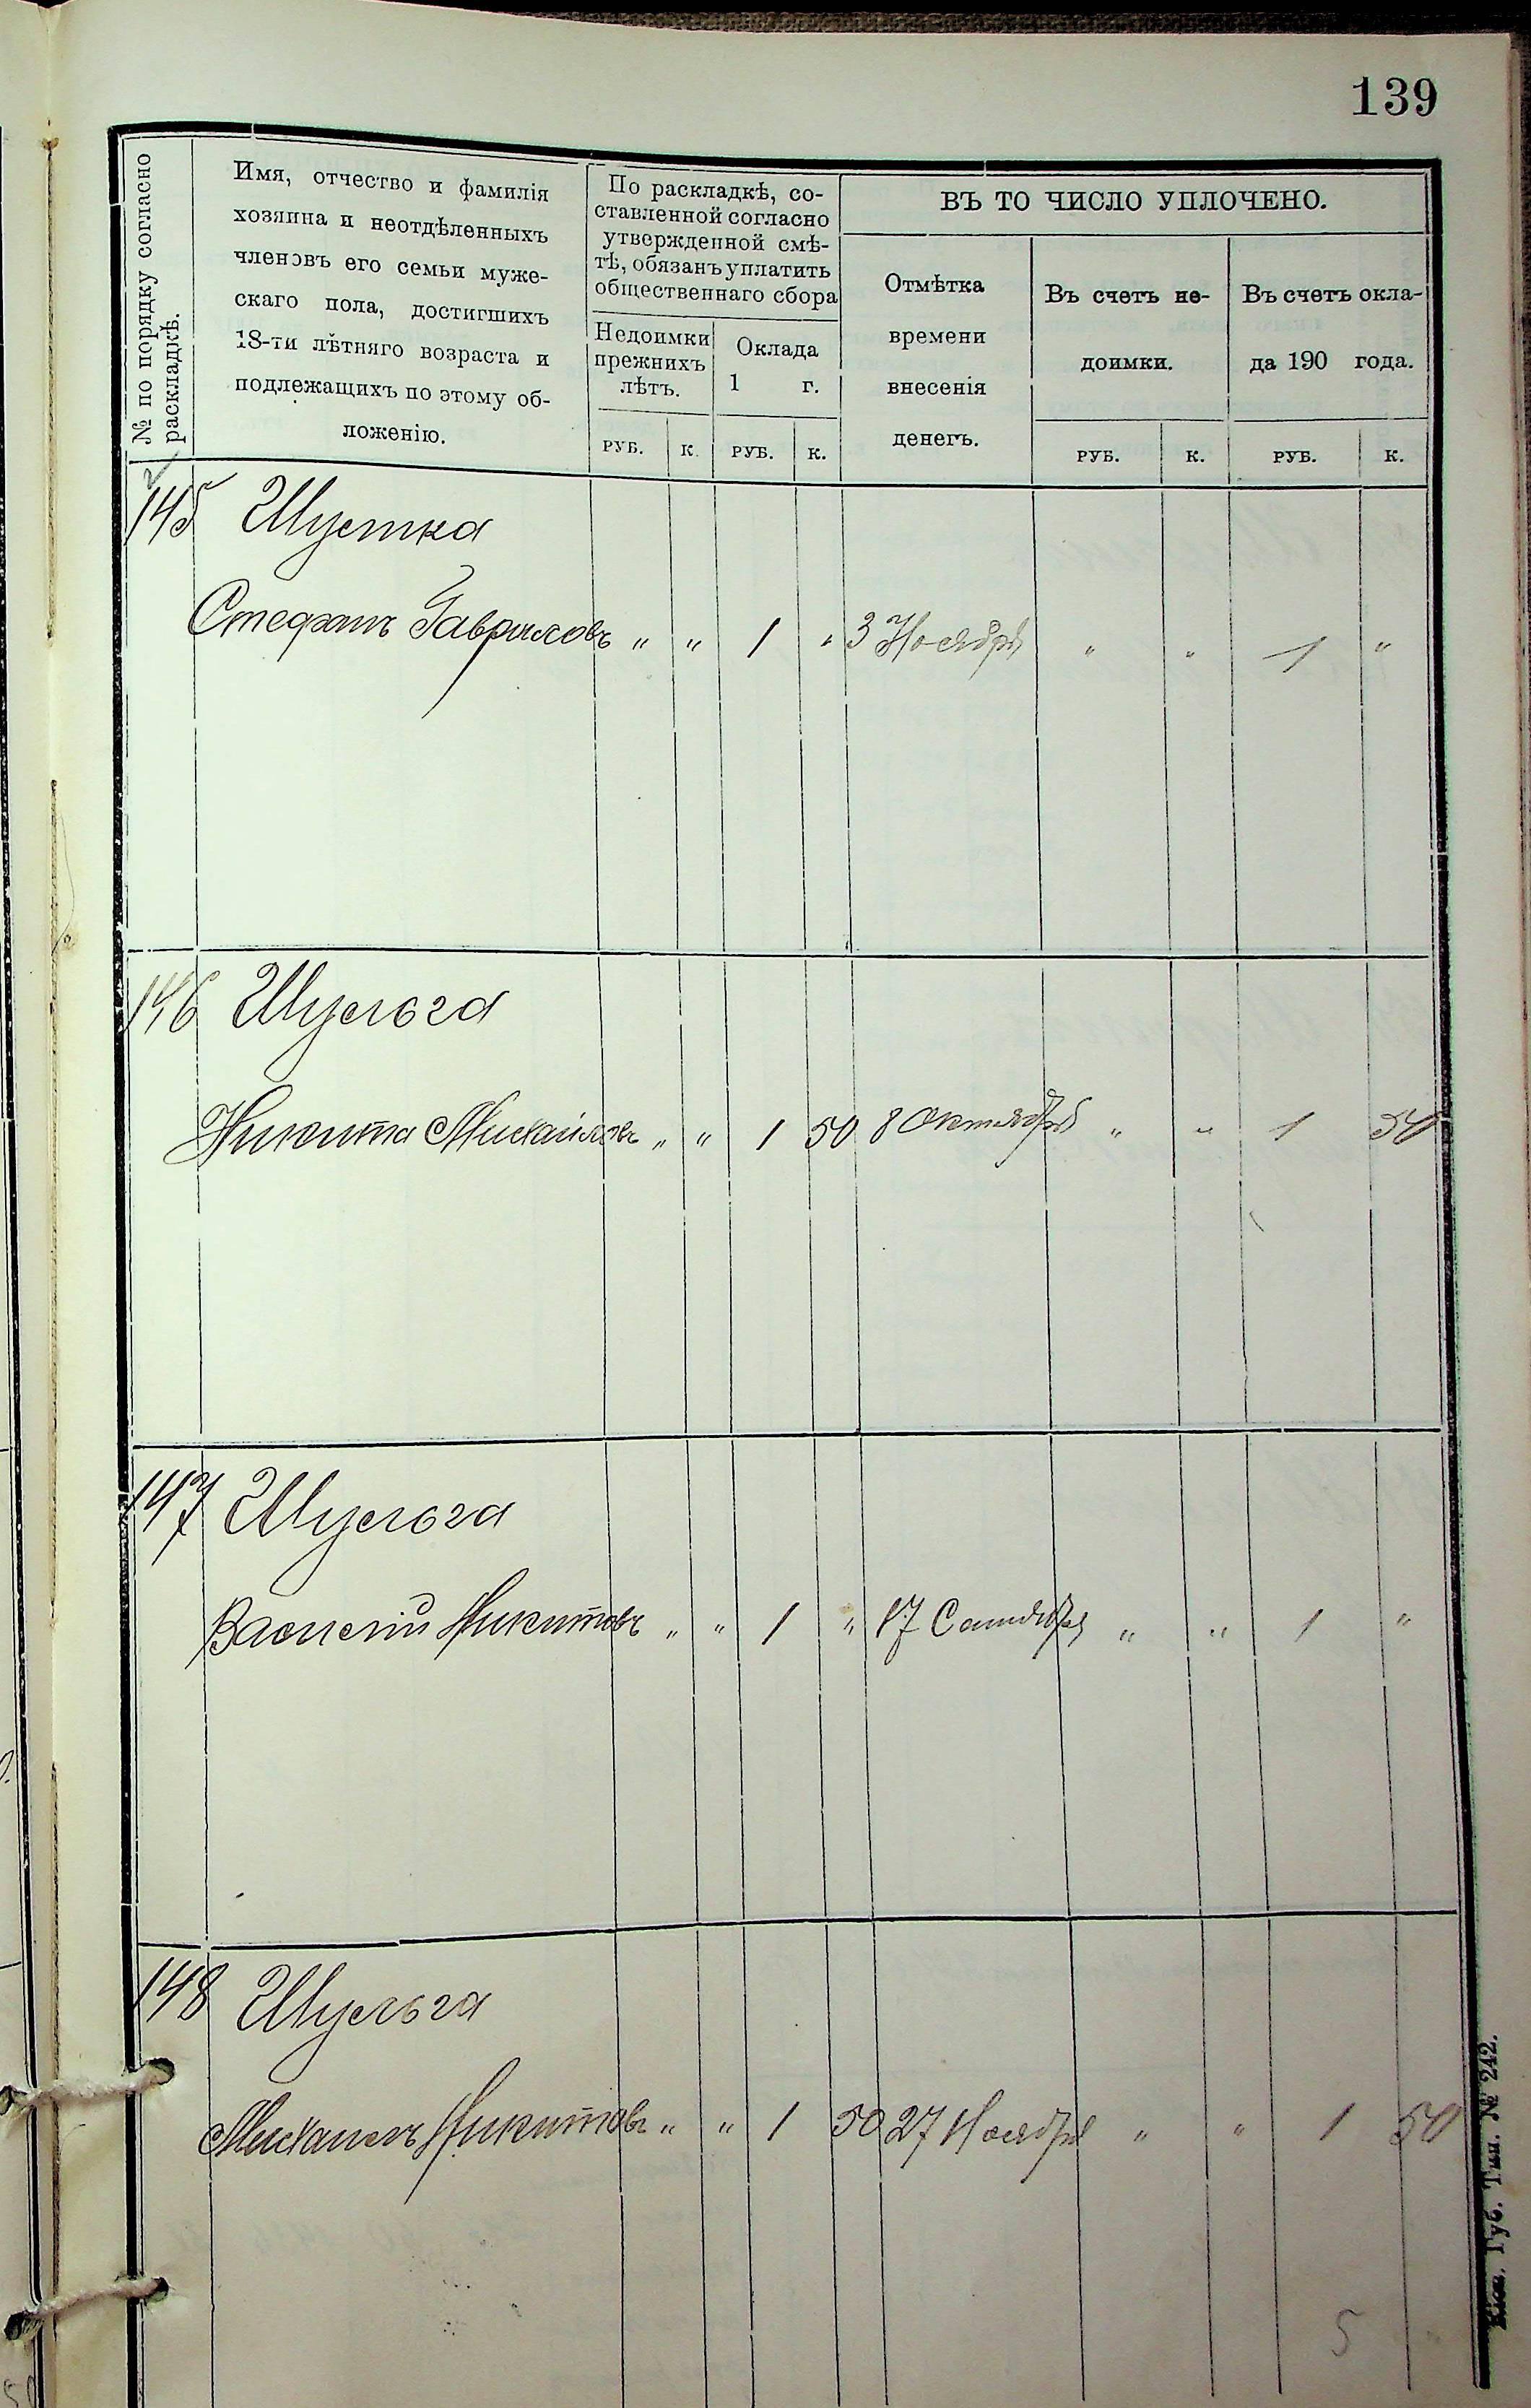 139
№ по порядку согласно
раскладкѣ.
Имя, отчество и фамилія
хозяина и неотдѣленныхъ
членовъ его семьи муже-
скаго пола, достигшихъ
18-ти лѣтняго возраста и
подлежащихъ по этому об-
ложенію.
По раскладкѣ, со-
ставленной согласно
утвержденной смѣ-
тѣ, обязанъ уплатить
общественнаго сбора
Недоимки
прежнихъ
лѣтъ.
Оклада
1 г.
ВЪ ТО ЧИСЛО УПЛОЧЕНО.
Отмѣтка
времени
внесенія
денегъ.
Въ счетъ не-
доимки.
Въ счетъ окла-
да 190 года.
РУБ. К. РУБ. К. РУБ. К. РУБ. К.
145 Шустка
Стефанъ Гавриловъ „ „ 1 „ 3 Ноября „ „ 1 „
146 Шульга
Никита Михайловъ „ „ 1 50 8 Октября „ „ 1 50
147 Шульга
Василій Никитовъ „ „ 1 „ 17 Сентября „ „ 1 „
148 Шульга
Михаилъ Никитовъ „ „ 1 50 27 Ноября „ „ 1 50
5
Кіев. Губ. Тип. № 242.